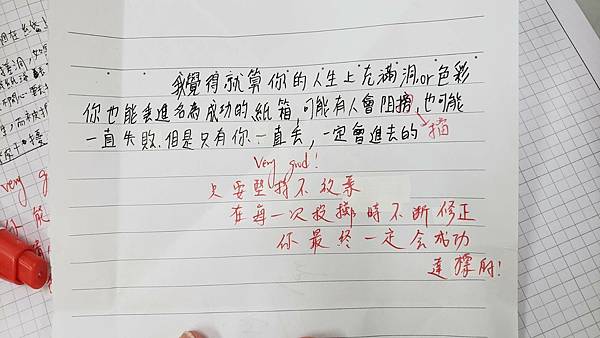 我覺得就算你的人生上充滿洞.or色彩
你也能丟進名為成功的紙箱,可能有人會阻,也可能
一直失敗.但是只有你一直丟,一定會進去的 擋
Very good!
只要堅持不放棄
在每一次投擲時不断修正
你最終一定会成功
達標的!
very g